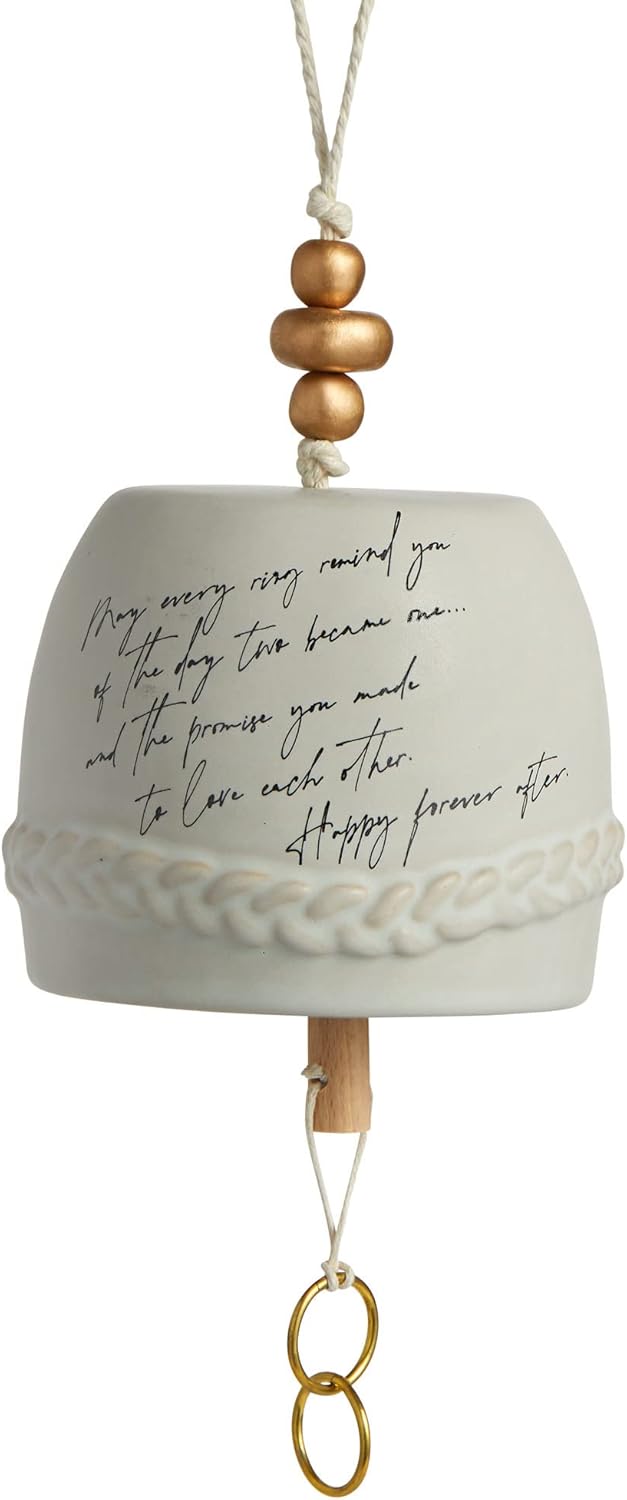 May every ring remind you
of the day two became one...
and the promise you made
to love each other.
Happy forever after.